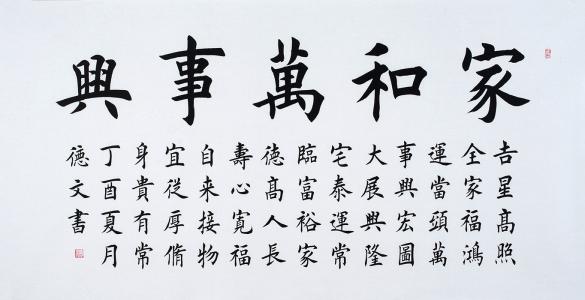 家和萬事興
吉星高照
全家福鴻
運當頭萬
事興宏圖
大展興隆
宅泰運常
臨富裕家
德高人長
壽心寬福
自来接物
宜從厚脩
身貴有常
丁酉夏月
德文書